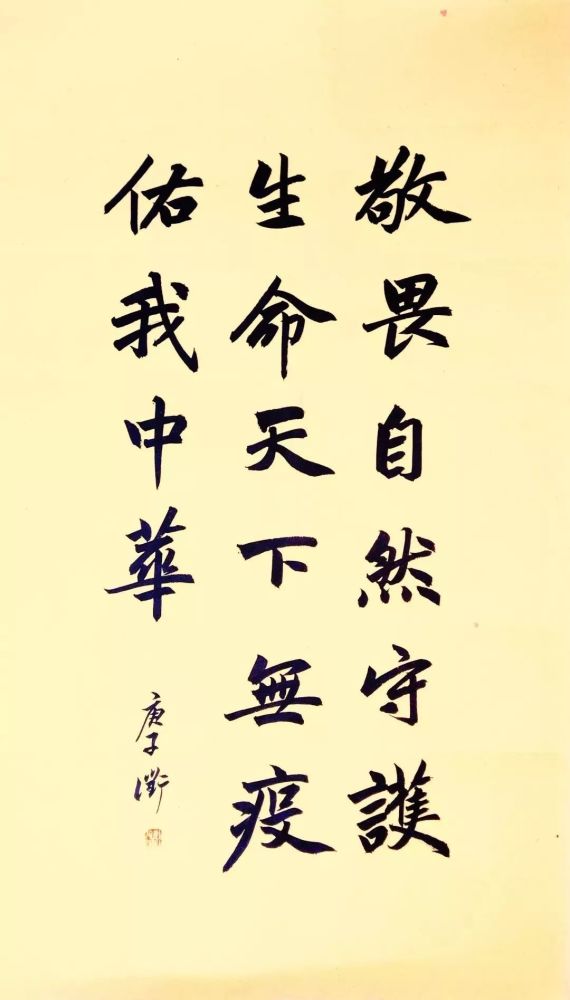 敬畏自然守護
生命天下無疫
佑我中華
庚子